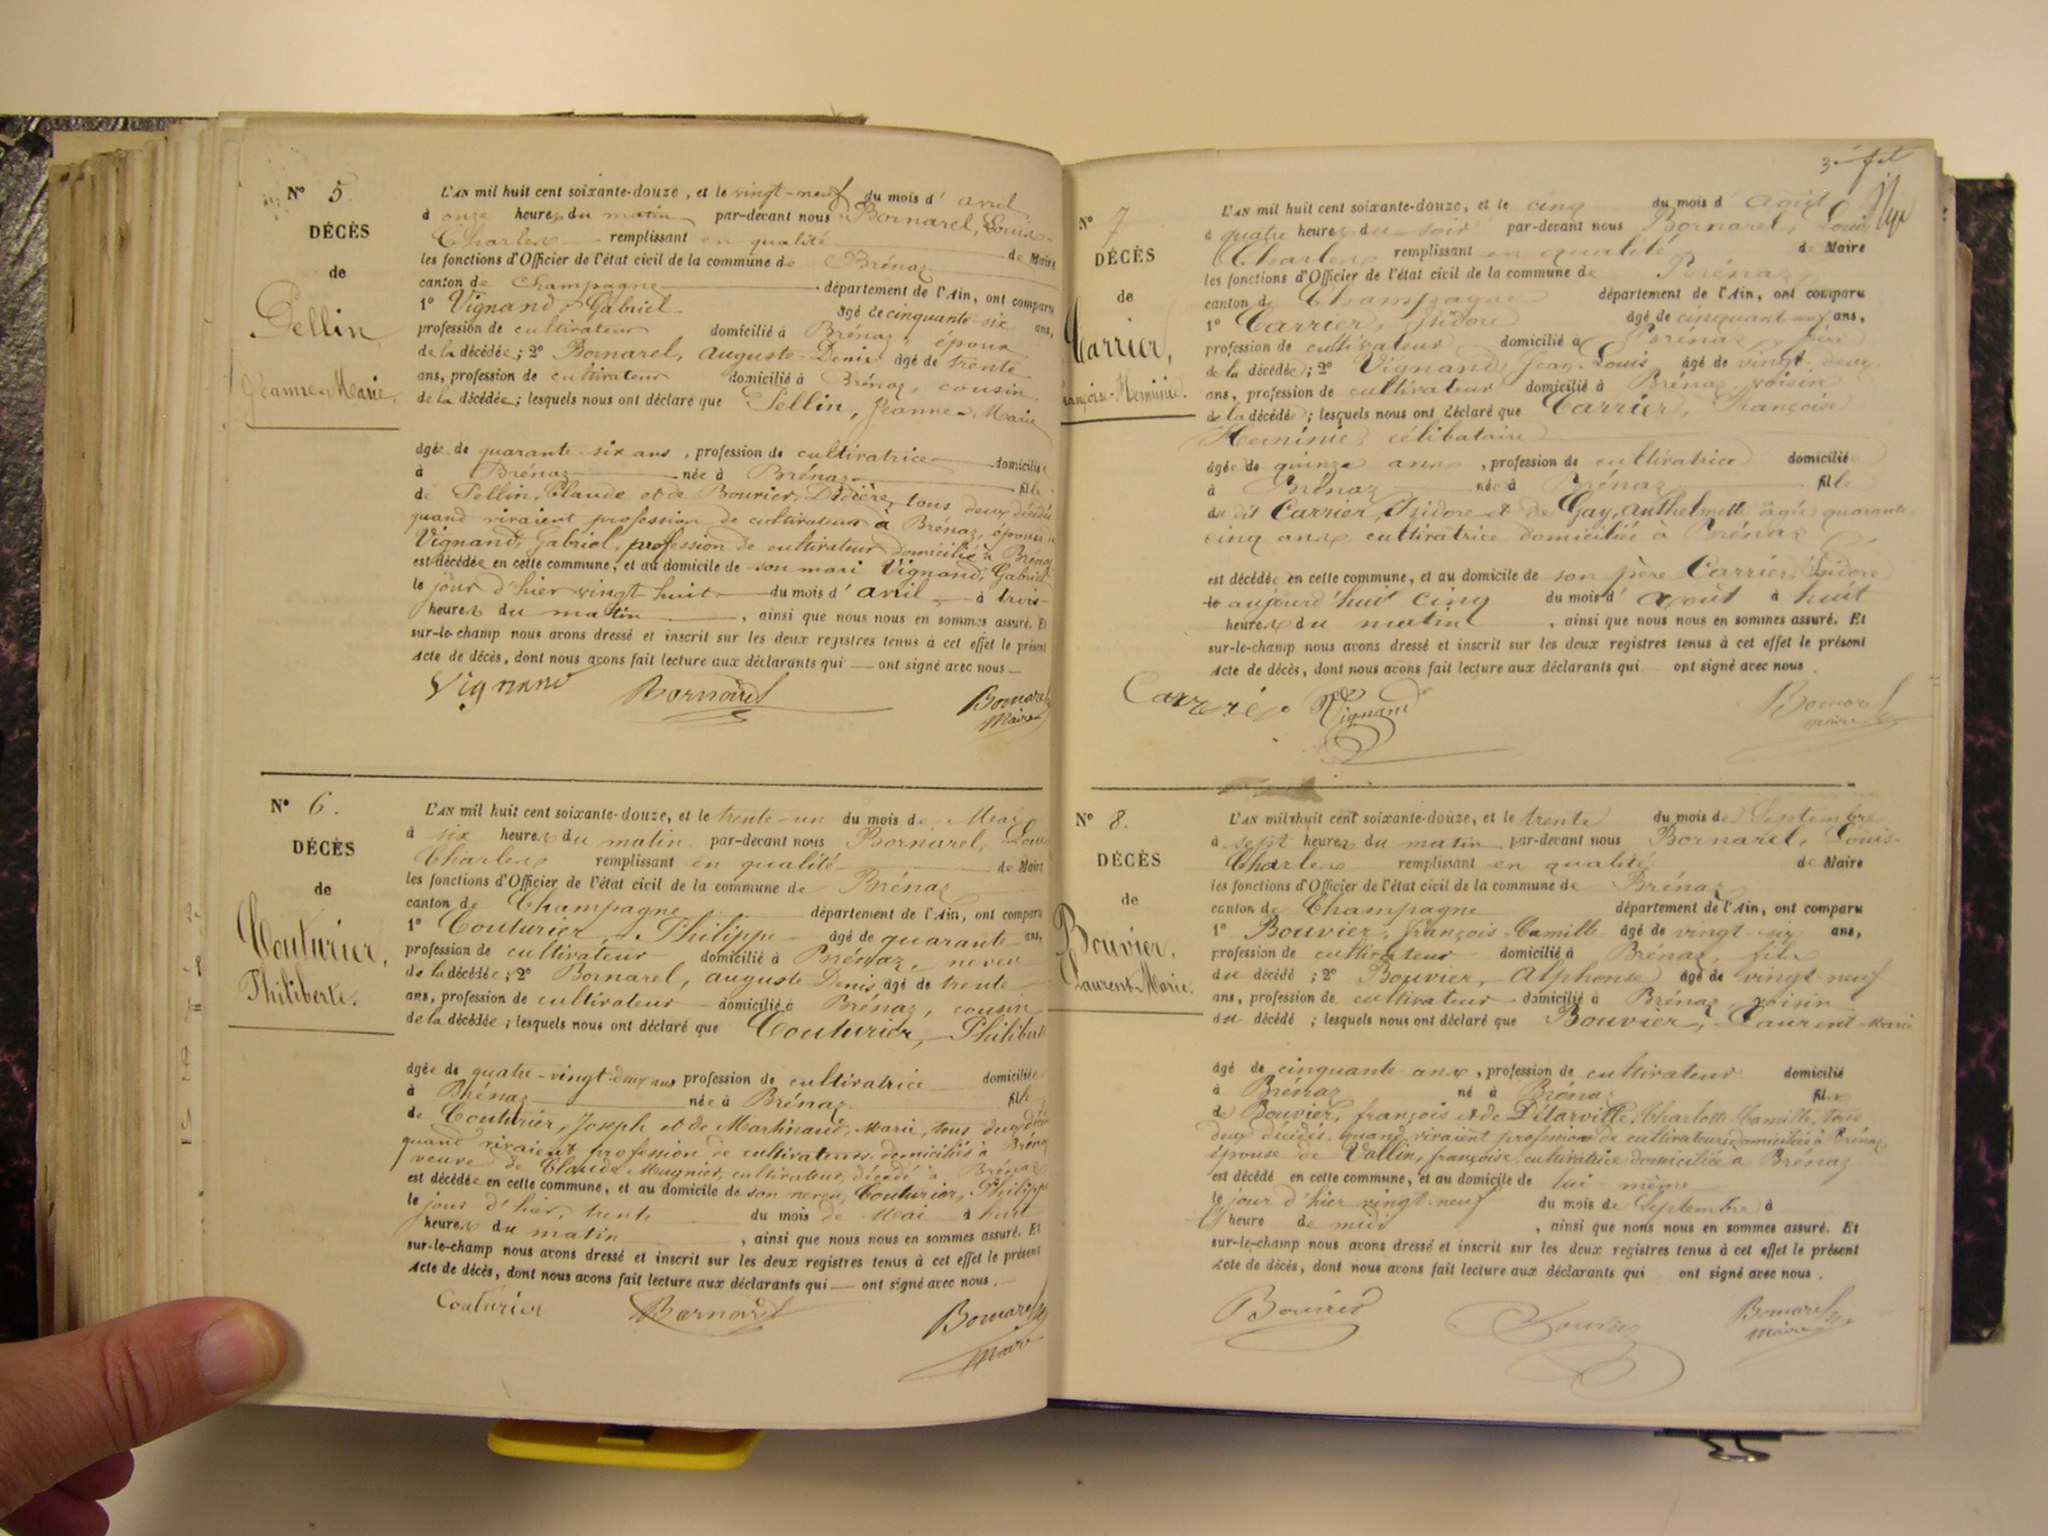 N° 5.
DÉCÈS
de
Pellin,
Jeanne-Marie.
L'AN mil huit cent soixante-douze, et le vingt-neuf du mois d' avril
à onze heures du matin par-devant nous Bornarel, Louis-
Charles remplissant en qualité de Maire
les fonctions d'Officier de l'état civil de la commune de Brénaz
canton de Champagne département de l'Ain, ont comparu
1° Vignand, Gabriel âgé de cinquante-six ans,
profession de cultivateur domicilié à Brénaz, époux
de la décédée; 2° Bornarel, Auguste-Denis âgé de trente
ans, profession de cultivateur domicilié à Brénaz, cousin
de la décédée; lesquels nous ont déclaré que Pellin, Jeanne-Marie
âgée de quarante-six ans, profession de cultivatrice domiciliée
à Brénaz née à Brénaz fille
de Pellin, Claude et de Bouvier, Didière, tous deux décédés
quand vivaient profession de cultivateurs à Brénaz, épouse de
Vignand, Gabriel, profession de cultivateur domicilié à Brénaz
est décédée en cette commune, et au domicile de son mari Vignand, Gabriel
le jour d'hier vingt huit du mois d' avril à trois
heures du matin, ainsi que nous nous en sommes assuré. Et
sur-le-champ nous avons dressé et inscrit sur les deux registres tenus à cet effet le présent
Acte de décès, dont nous avons fait lecture aux déclarants qui ont signé avec nous
Vignand Bornarel Bornarel
Maire
N° 6.
DÉCÈS
de
Couturier,
Philiberte.
L'AN mil huit cent soixante-douze, et le trente-un du mois de Mai
à six heures du matin par-devant nous Bornarel, Louis
Charles remplissant en qualité de Maire
les fonctions d'Officier de l'état civil de la commune de Brénaz
canton de Champagne département de l'Ain, ont comparu
1° Couturier, Philippe âgé de quarante ans,
profession de cultivateur domicilié à Brénaz, neveu
de la décédée; 2° Bornarel, Auguste Denis âgé de trente
ans, profession de cultivateur domicilié à Brénaz, cousin
de la décédée; lesquels nous ont déclaré que Couturier, Philiberte
âgée de quatre-vingt-deux ans profession de cultivatrice domiciliée
à Brénaz née à Brénaz fille
de Couturier, Joseph et de Martinand, Marie, tous deux décédés
quand vivaient profession de cultivateurs domiciliés à Brénaz
veuve de Claude Mugnier, cultivateur, décédé à Brénaz
est décédée en cette commune, et au domicile de son neveu, Couturier, Philippe
le jour d'hier, trente du mois de Mai à huit
heures du matin, ainsi que nous nous en sommes assuré. Et
sur-le-champ nous avons dressé et inscrit sur les deux registres tenus à cet effet le présent
Acte de décès, dont nous avons fait lecture aux déclarants qui ont signé avec nous.
Couturier Bornarel Bornarel
Maire
N° 7
DÉCÈS
de
Carrier,
Françoise-Herminie.
L'AN mil huit cent soixante-douze, et le cinq du mois d' Août
à quatre heures du soir par-devant nous Bornarel, Louis
Charles remplissant en qualité de Maire
les fonctions d'Officier de l'état civil de la commune de Brénaz
canton de Champagne département de l'Ain, ont comparu
1° Carrier, Isidore âgé de cinquante-neuf ans,
profession de cultivateur domicilié à Brénaz, père
de la décédée; 2° Vignand, Jean-Louis âgé de vingt-deux
ans, profession de cultivateur domicilié à Brénaz, voisin
de la décédée; lesquels nous ont déclaré que Carrier, Françoise
Herminie, célibataire
âgée de quinze ans, profession de cultivatrice domiciliée
à Brénaz née à Brénaz fille
du dit Carrier, Isidore et de Gay, Anthelmette âgée quarante
cinq ans cultivatrice domiciliée à Brénaz
est décédée en cette commune, et au domicile de son père Carrier, Isidore
le aujourd'hui cinq du mois d' août à huit
heures du matin, ainsi que nous nous en sommes assuré. Et
sur-le-champ nous avons dressé et inscrit sur les deux registres tenus à cet effet le présent
Acte de décès, dont nous avons fait lecture aux déclarants qui ont signé avec nous.
Vignand Bornarel
maire
N° 8.
DÉCÈS
de
Bouvier,
Laurent-Marie.
L'AN mil huit cent soixante-douze, et le trente du mois de Septembre
à sept heures du matin par-devant nous Bornarel, Louis-
Charles remplissant en qualité de Maire
les fonctions d'Officier de l'état civil de la commune de Brénaz
canton de Champagne département de l'Ain, ont comparu
1° Bouvier, François-Camille âgé de vingt-six ans,
profession de cultivateur domicilié à Brénaz, fils
du décédé; 2° Bouvier, Alphonse âgé de vingt-neuf
ans, profession de cultivateur domicilié à Brénaz, voisin
du décédé; lesquels nous ont déclaré que Bouvier, Laurent-Marie
âgé de cinquante ans, profession de cultivateur domicilié
à Brénaz né à Brénaz fils
de Bouvier, françois et de Détarville, Charlotte Camille, tous
deux décédés quand vivaient profession de cultivateurs domiciliés à Brénaz,
épouse de Vallin, françoise, cultivatrice domiciliée à Brénaz
est décédé en cette commune, et au domicile de lui-même
le jour d'hier vingt-neuf du mois de Septembre à
heure de midi, ainsi que nous nous en sommes assuré. Et
sur-le-champ nous avons dressé et inscrit sur les deux registres tenus à cet effet le présent
Acte de décès, dont nous avons fait lecture aux déclarants qui ont signé avec nous.
Bouvier Bornarel
Maire